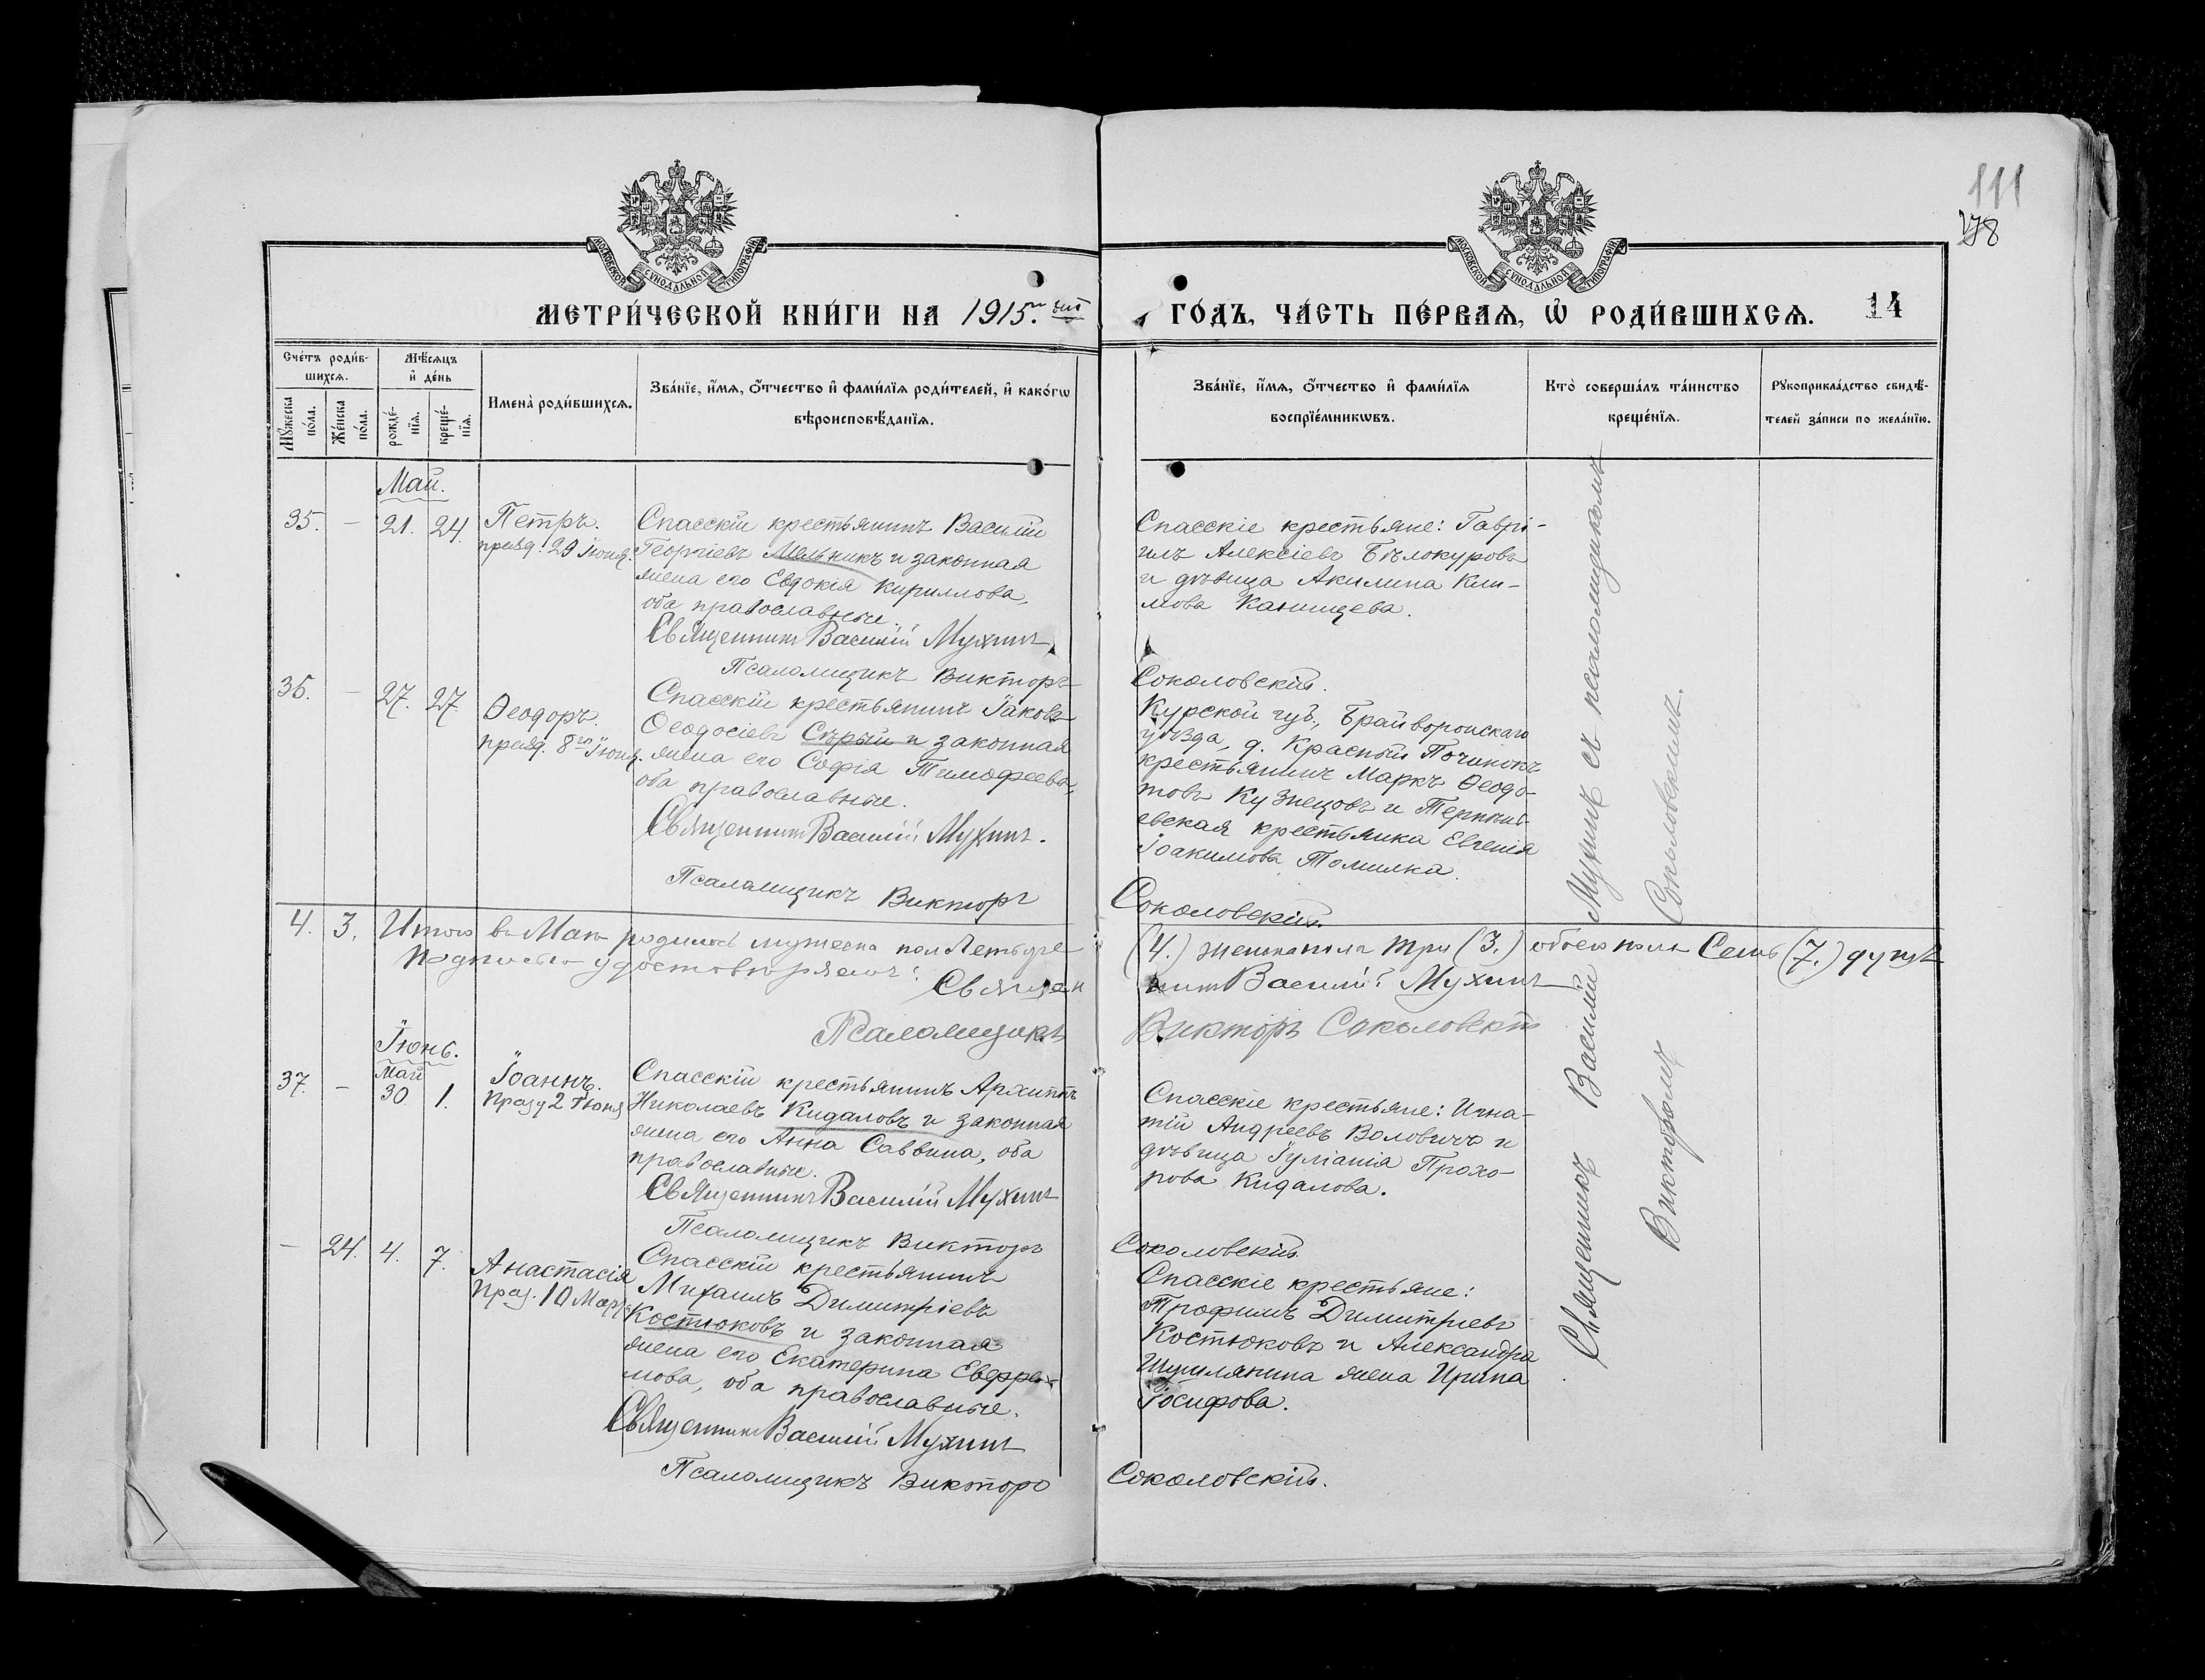 111
278
МОСКОВСКОЙ СѴНОДАЛЬНОЙ ТИПОГРАФІИ
МОСКОВСКОЙ СѴНОДАЛЬНОЙ ТИПОГРАФІИ
МЕТРИ́ЧЕСКОЙ КНИ́ГИ НА 1915.
ГО́ДЪ, ЧА́СТЬ ПЕ́РВАѦ, Ѡ҆ РОДИ́ВШИХСѦ. 14
Сче́тъ роди́в-
шихсѧ.
Мꙋ́жеска по́ла.
Же́нска по́ла.
Мѣ́сѧцъ и҆ де́нь
рожде́-нїѧ.
креще́-нїѧ.
Имена̀ роди́вшихсѧ.
Зва́нїе, и҆́мѧ, ѻ҆́тчество и҆ фами́лїѧ роди́телей, и҆ како́гѡ
вѣроисповѣ́данїѧ.
Зва́нїе, и҆́мѧ, ѻ҆́тчество и҆ фами́лїѧ
воспрїе́мникѡвъ.
Кто̀ соверша́лъ та́инство
креще́нїѧ.
Рꙋкоприкла́дство свидѣ́-
телей за́писи по жела́нїю.
Май.
35. – 21. 24. Петръ.
празд. 29 Іюня.
Спасскій крестьянинъ Василій
Георгіевъ Мельникъ и законная
жена его Евдокія Кириллова,
оба православные.
Священникъ Василій Мухинъ
Псаломщикъ Викторъ
Спасскіе крестьяне: Гаврі-
илъ Алексіевъ Бѣлокуровъ
и дѣвица Акилина Кли-
мова Канищева.
Соколовскій.
36. – 27. 27. Ѳеодоръ.
празд. 8го Іюня.
Спасскій крестьянинъ Іаковъ
Ѳеодосіевъ Сѣрый и законная
жена его Софія Тимофеева,
оба православные.
Священникъ Василій Мухинъ.
Псаломщикъ Викторъ
Курской губ., Грайворонскаго
уѣзда, д. Красный Починокъ
крестьянинъ Маркъ Ѳеодо-
товъ Кузнецовъ и
евская крестьянка Евгенія
Іоакимова Томилка.
Соколовскій.
4. 3. Итого въ Маѣ родилось мужеска пол Четыре (4.) женска пола три (3.) обоего пола Семь (7.) душъ
Подписью удостовѣряемъ:
Священникъ Василій Мухинъ
Псаломщикъ Викторъ Соколовскій
Іюнь.
37. – Май 30 1. Іоаннъ.
Празд 2 Іюня
Спасскій крестьянинъ Архиппъ
Николаевъ Кидаловъ и законная
жена его Анна Саввина, оба
православные.
Священникъ Василій Мухинъ
Псаломщикъ Викторъ
Спасскіе крестьяне: Игна-
тій Андреевъ Воловичъ и
дѣвица Іуліанія Прохо-
рова Кидалова.
Соколовскій.
– 24. 4. 7. Анастасія
Праз. 10 Марта
Спасскій крестьянинъ
Михаилъ Димитріевъ
Костюковъ и законная
жена его Екатерина Евфре-
мова, оба православные.
Священникъ Василій Мухинъ
Псаломщикъ Викторъ
Спасскіе крестьяне:
Трофимъ Димитріевъ
Костюковъ и Александра
Шумлянина жена Ирина
Іосифова.
Соколовскій.
Священникъ Василій Мухинъ съ псаломщикомъ
Викторомъ Соколовскимъ.